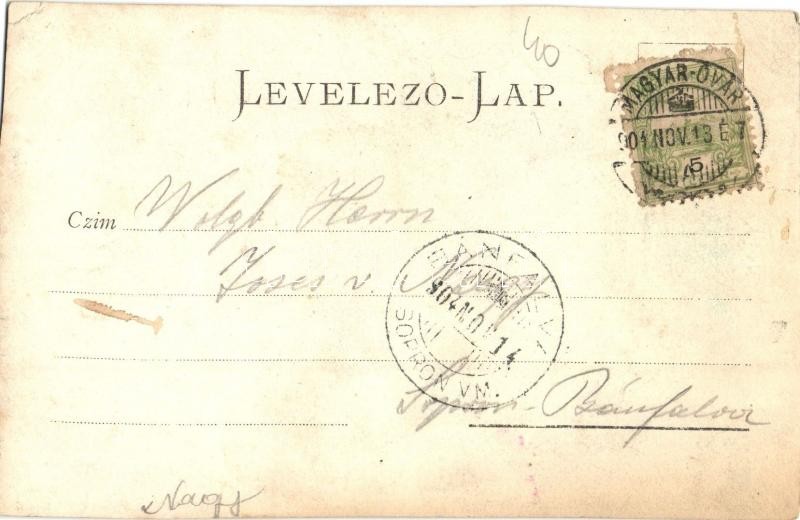 40
LEVELEZO-LAP.
MAGYAR-ÓVÁR
904 NOV. 13 É 7
5
Czim Wolgb. Herrn
Josef v.
BÁNFALVA
904 NOV 14
SOPRON VM.
Sopron-Bánfalva
Nagy